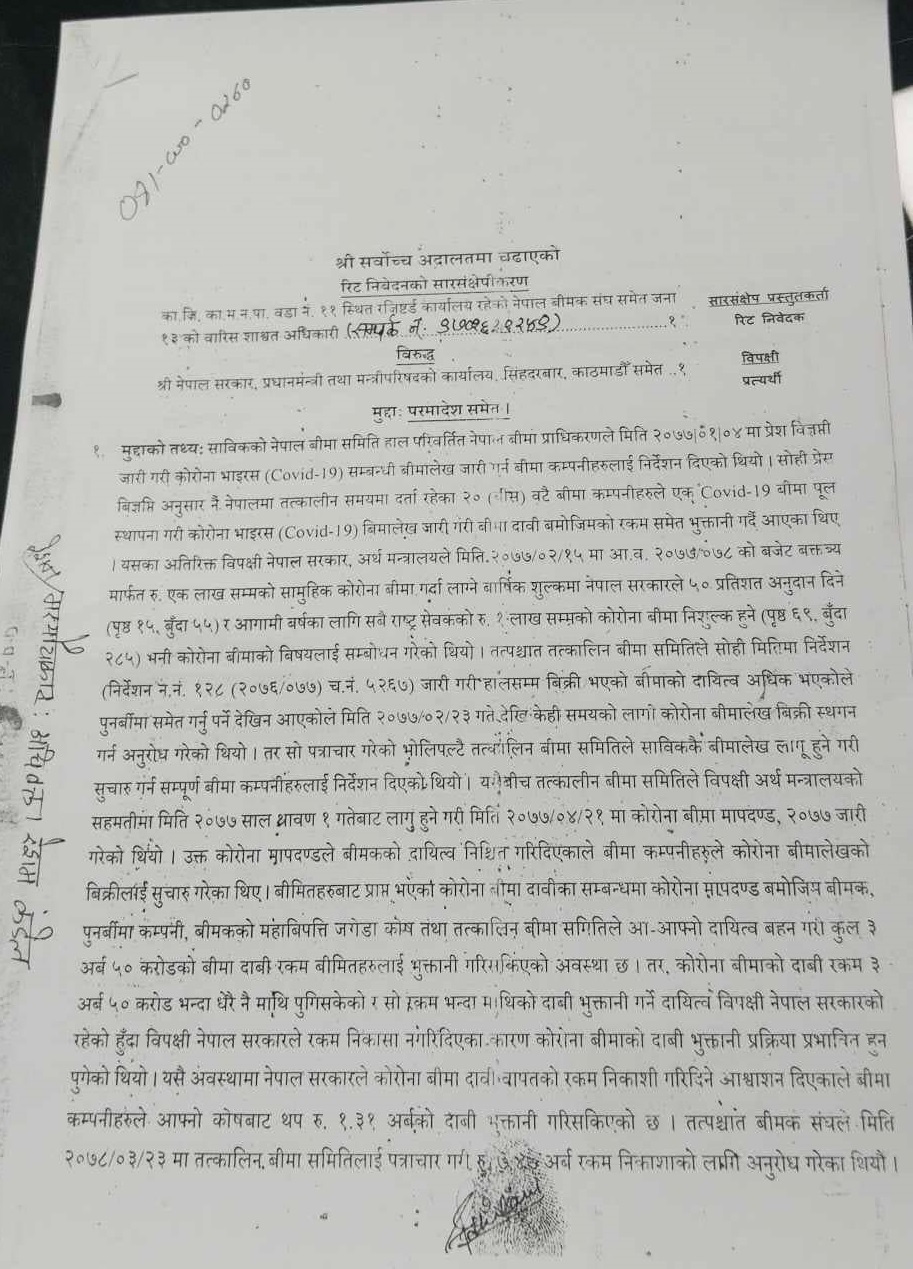 081-WO-0260
श्री सर्वोच्च अदालतमा चढाएको
रिट निवेदनको सारसंक्षेपीकरण
का.जि. का.म.न.पा. वडा नं. ११ स्थित रजिष्टर्ड कार्यालय रहेको नेपाल बीमक संघ समेत जना
१३ को वारिस शाश्वत अधिकारी (सम्पर्क नं: ..............................१
सारसंक्षेप प्रस्तुतकर्ता
रिट निवेदक
विरुद्ध
श्री नेपाल सरकार, प्रधानमन्त्री तथा मन्त्रीपरिषदको कार्यालय, सिंहदरबार, काठमाडौँ समेत ..१
विपक्षी
प्रत्यर्थी
मुद्दाः परमादेश समेत ।
१. मुद्दाको तथ्य: साविकको नेपाल बीमा समिति हाल परिवर्तित नेपाल बीमा प्राधिकरणले मिति २०७७|०१|०४ मा प्रेश विज्ञप्ती
जारी गरी कोरोना भाइरस (Covid-19) सम्बन्धी बीमालेख जारी गर्न बीमा कम्पनीहरुलाई निर्देशन दिएको थियो । सोही प्रेस
बिज्ञप्ति अनुसार नै नेपालमा तत्कालीन समयमा दर्ता रहेका २० (बीस) वटै बीमा कम्पनीहरुले एक Covid-19 बीमा पूल
स्थापना गरी कोरोना भाइरस (Covid-19) बिमालेख जारी गरी बीमा दावी बमोजिमको रकम समेत भुक्तानी गर्दै आएका थिए
। यसका अतिरिक्त विपक्षी नेपाल सरकार, अर्थ मन्त्रालयले मिति २०७७/०२/१५ मा आ.व. २०७७/०७८ को बजेट बक्तव्य
मार्फत रु. एक लाख सम्मको सामुहिक कोरोना बीमा गर्दा लाग्ने बार्षिक शुल्कमा नेपाल सरकारले ५० प्रतिशत अनुदान दिने
(पृष्ठ १५, बुँदा ५५) र आगामी बर्षका लागि सबै राष्ट्र सेवकको रु. १ लाख सम्मको कोरोना बीमा निशुल्क हुने (पृष्ठ ६९, बुँदा
२८५) भनी कोरोना बीमाको बिषयलाई सम्बोधन गरेको थियो । तत्पश्चात तत्कालिन बीमा समितिले सोही मितिमा निर्देशन
(निर्देशन न.नं. १२८ (२०७६/०७७) च.नं. ५२६७) जारी गरी हालसम्म बिक्री भएको बीमाको दायित्व अधिक भएकोले
पुनर्बीमा समेत गर्नु पर्ने देखिन आएकोले मिति २०७७/०२/२३ गते देखि केही समयको लागी कोरोना बीमालेख बिक्री स्थगन
गर्न अनुरोध गरेको थियो । तर सो पत्राचार गरेको भोलिपल्टै तत्कालिन बीमा समितिले साविककै बीमालेख लागू हुने गरी
सुचारु गर्न सम्पूर्ण बीमा कम्पनीहरुलाई निर्देशन दिएको थियो । यसैबीच तत्कालीन बीमा समितिले विपक्षी अर्थ मन्त्रालयको
सहमतीमा मिति २०७७ साल श्रावण १ गतेबाट लागु हुने गरी मिति २०७७/०४/२१ मा कोरोना बीमा मापदण्ड, २०७७ जारी
गरेको थियो । उक्त कोरोना मापदण्डले बीमकको दायित्व निश्चित गरिदिएकाले बीमा कम्पनीहरुले कोरोना बीमालेखको
बिक्रीलाई सुचारु गरेका थिए । बीमितहरुबाट प्राप्त भएको कोरोना बीमा दावीका सम्बन्धमा कोरोना मापदण्ड बमोजिम बीमक,
पुनर्बीमा कम्पनी, बीमकको महाबिपत्ति जगेडा कोष तथा तत्कालिन बीमा समितिले आ-आफ्नो दायित्व बहन गरी कुल ३
अर्ब ५० करोडको बीमा दाबी रकम बीमितहरुलाई भुक्तानी गरिसकिएको अवस्था छ । तर, कोरोना बीमाको दाबी रकम ३
अर्ब ५० करोड भन्दा धेरै नै माथि पुगिसकेको र सो रकम भन्दा माथिको दाबी भुक्तानी गर्ने दायित्व विपक्षी नेपाल सरकारको
रहेको हुँदा विपक्षी नेपाल सरकारले रकम निकासा नगरिदिएका कारण कोरोना बीमाको दाबी भुक्तानी प्रक्रिया प्रभावित हुन
पुगेको थियो । यसै अवस्थामा नेपाल सरकारले कोरोना बीमा दावी बापतको रकम निकाशी गरिदिने आश्वाशन दिएकाले बीमा
कम्पनीहरुले आफ्नो कोषबाट थप रु. १.३१ अर्बको दाबी भुक्तानी गरिसकिएको छ । तत्पश्चात बीमक संघले मिति
२०७८/०३/२३ मा तत्कालिन बीमा समितिलाई पत्राचार गरी रु. अर्ब रकम निकाशाको लागि अनुरोध गरेका थियौं ।